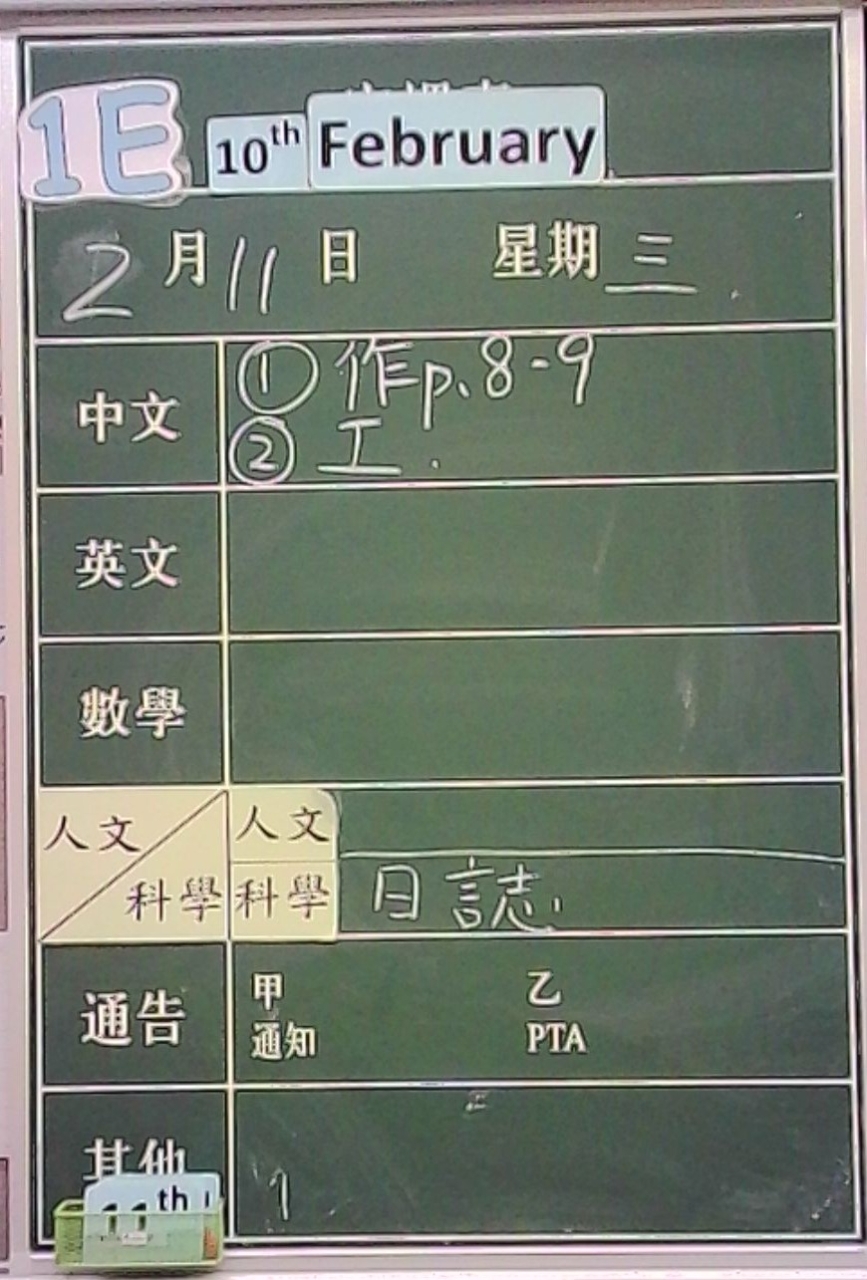 1E 10th February
2月11日 星期三
中文 ① 作p.8-9
② 工.
英文
數學
人文 人文
科學 科學 日誌
通告 甲 乙
通知 PTA
其他 1
11th